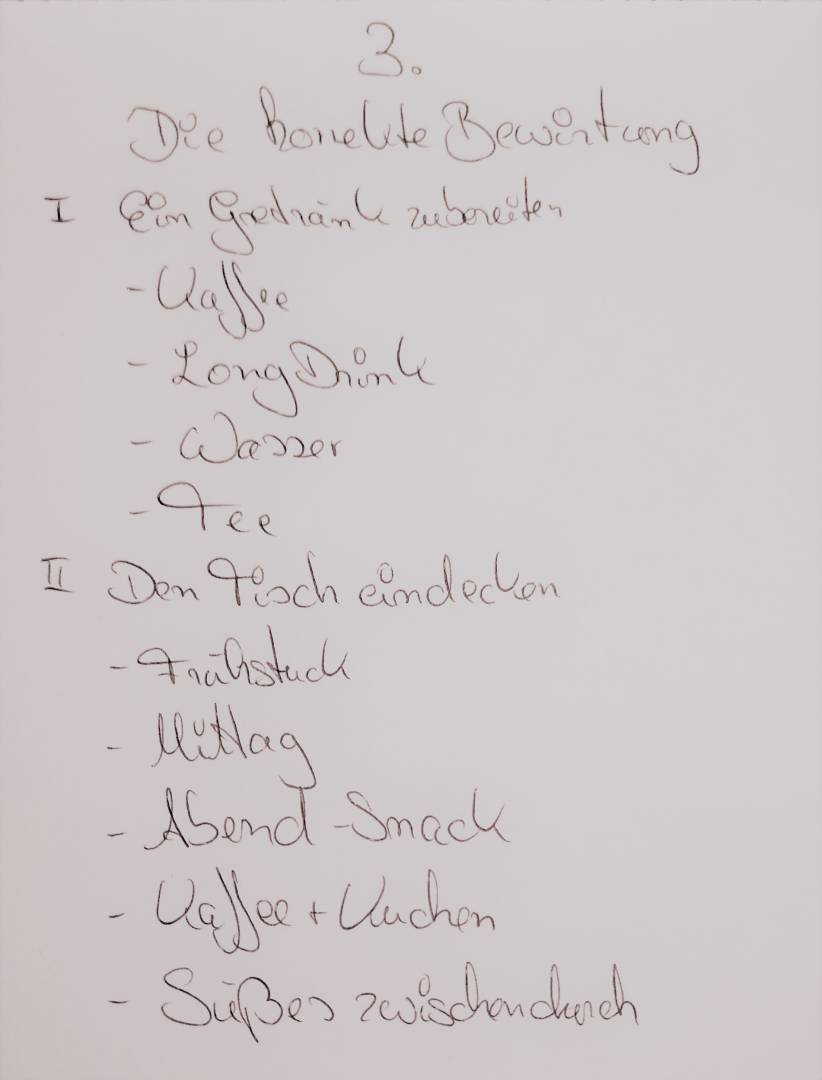 3.
Die korrekte Bewirtung
I Ein Getränk zubereiten
- Kaffee
- LongDrink
- Wasser
- Tee
II Den Tisch eindecken
- Frühstück
- Mittag
- Abend-Snack
- Kaffee + Kuchen
- Süßes zwischendurch